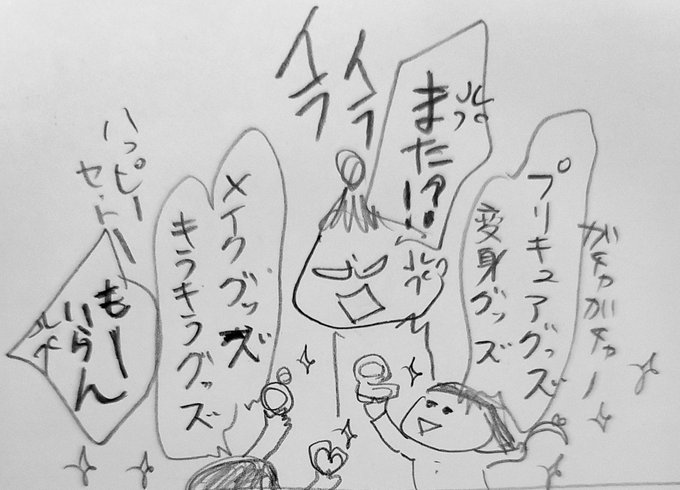 ガチャガチャー
プリキュアグッズ
変身グッズ
また!?
イライラ
メイクグッズ
キラキラグッズ
ハッピー
セットー
もー
いらん